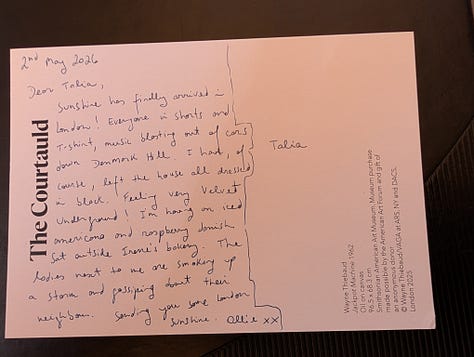 2nd May 2026
Dear Talia,
Sunshine has finally arrived in
London! Everyone in shorts and
T-shirt, music blasting out of cars
down Denmark Hill. I had, of
course, left the house all dressed
in black. Feeling very Velvet
Underground! I'm having an iced
americano and raspberry danish
Sat outside Irene's bakery. The
ladies next to me are smoking up
a storm and gossiping about their
neighbour. Sending you some London
sunshine. Ollie xx
Talia
The Courtauld
Wayne Thiebaud
Jackpot Machine 1962
Oil on canvas
96.5 x 68.3 cm
Smithsonian American Art Museum, Museum purchase
made possible by the American Art Forum and gift of
an anonymous donor
© Wayne Thiebaud/VAGA at ARS, NY and DACS,
London 2025